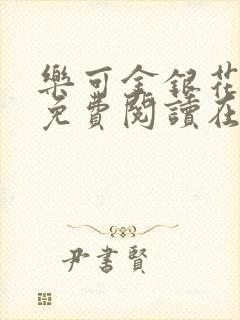 樂可金銀花
免費閱讀在
尹書賢